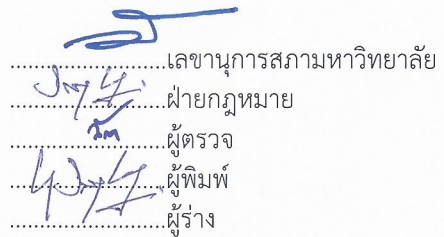 ....................เลขานุการสภามหาวิทยาลัย
....................ฝ่ายกฎหมาย
....................ผู้ตรวจ
....................ผู้พิมพ์
....................ผู้ร่าง